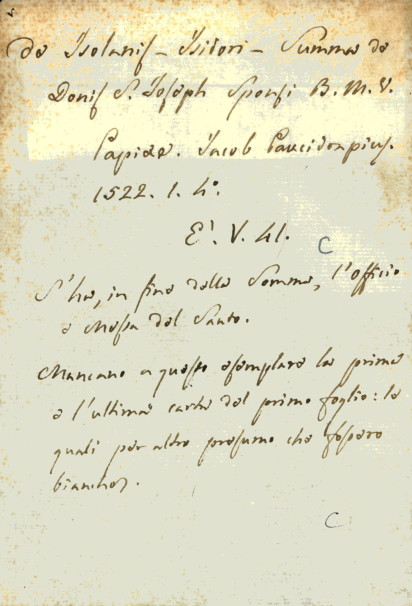 de Isolanis - Isidori - Summa de
Donis S. Joseph Sponsi B. M. V.
Papiae. Jacob Paucidrapius.
1522. 1. 4º.
E'. V. 41. C
S'ha, in fine della Somma, l'officio
e Messa del Santo.
Mancano a questo esemplare la prima
e l'ultima carta del primo foglio: le
quali per altro presumo che fossero
bianche.
C